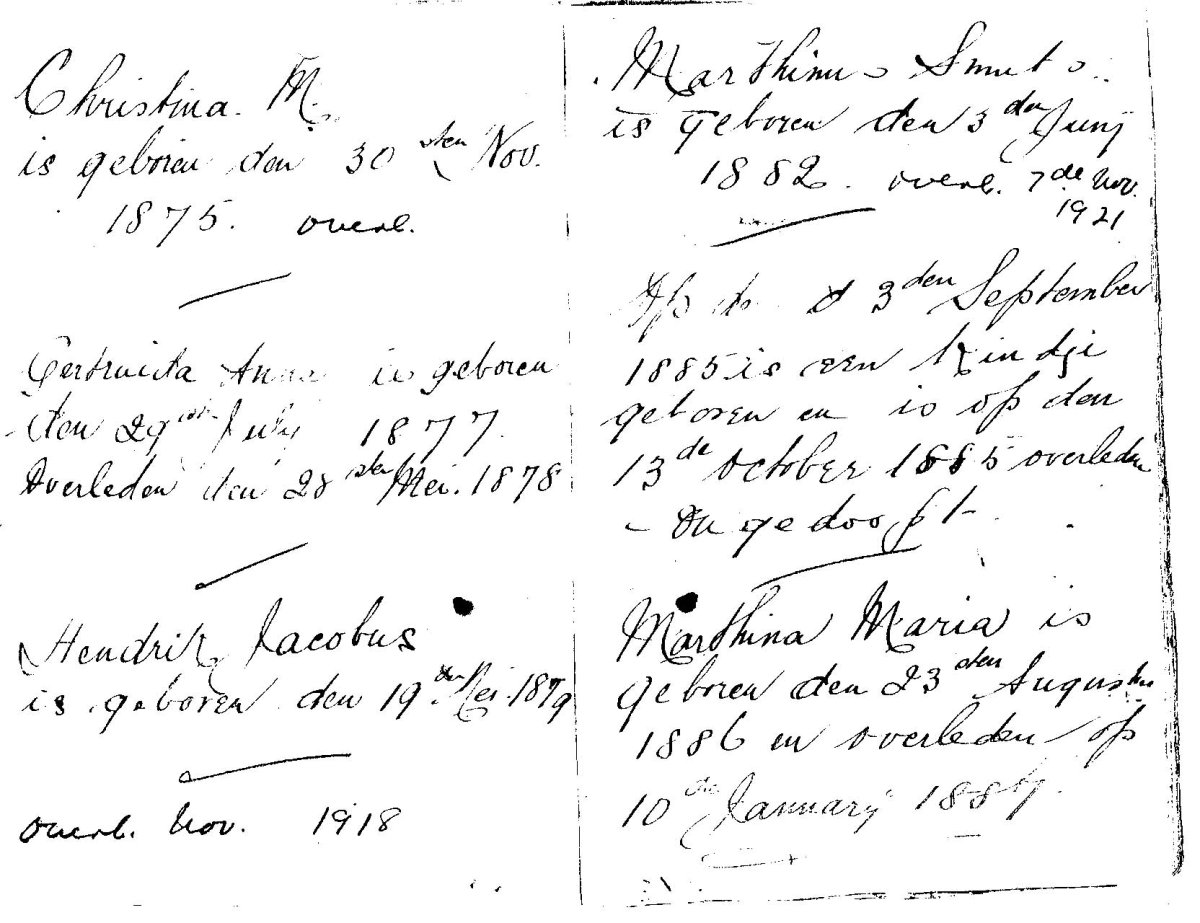 Christina. M.
is geboren den 30sten Nov.
1875. overl.
Gertruida Anna is geboren
den 29ste July 1877.
Overleden den 28sten Mei. 1878
Hendrik Jacobus
is geboren den 19den Mei. 1879
overl. Nov. 1918
Marthinus Smuts.
is geboren den 3den Junij
1882. overl. 7de Nov.
1921
Op de 3den September
1885 is een Kindje
geboren en is op den
13de October 1885 overleden
- On gedoopt -
Marthina Maria is
geboren den 23sten Augustus
1886 en overleden op
10de January 1887.